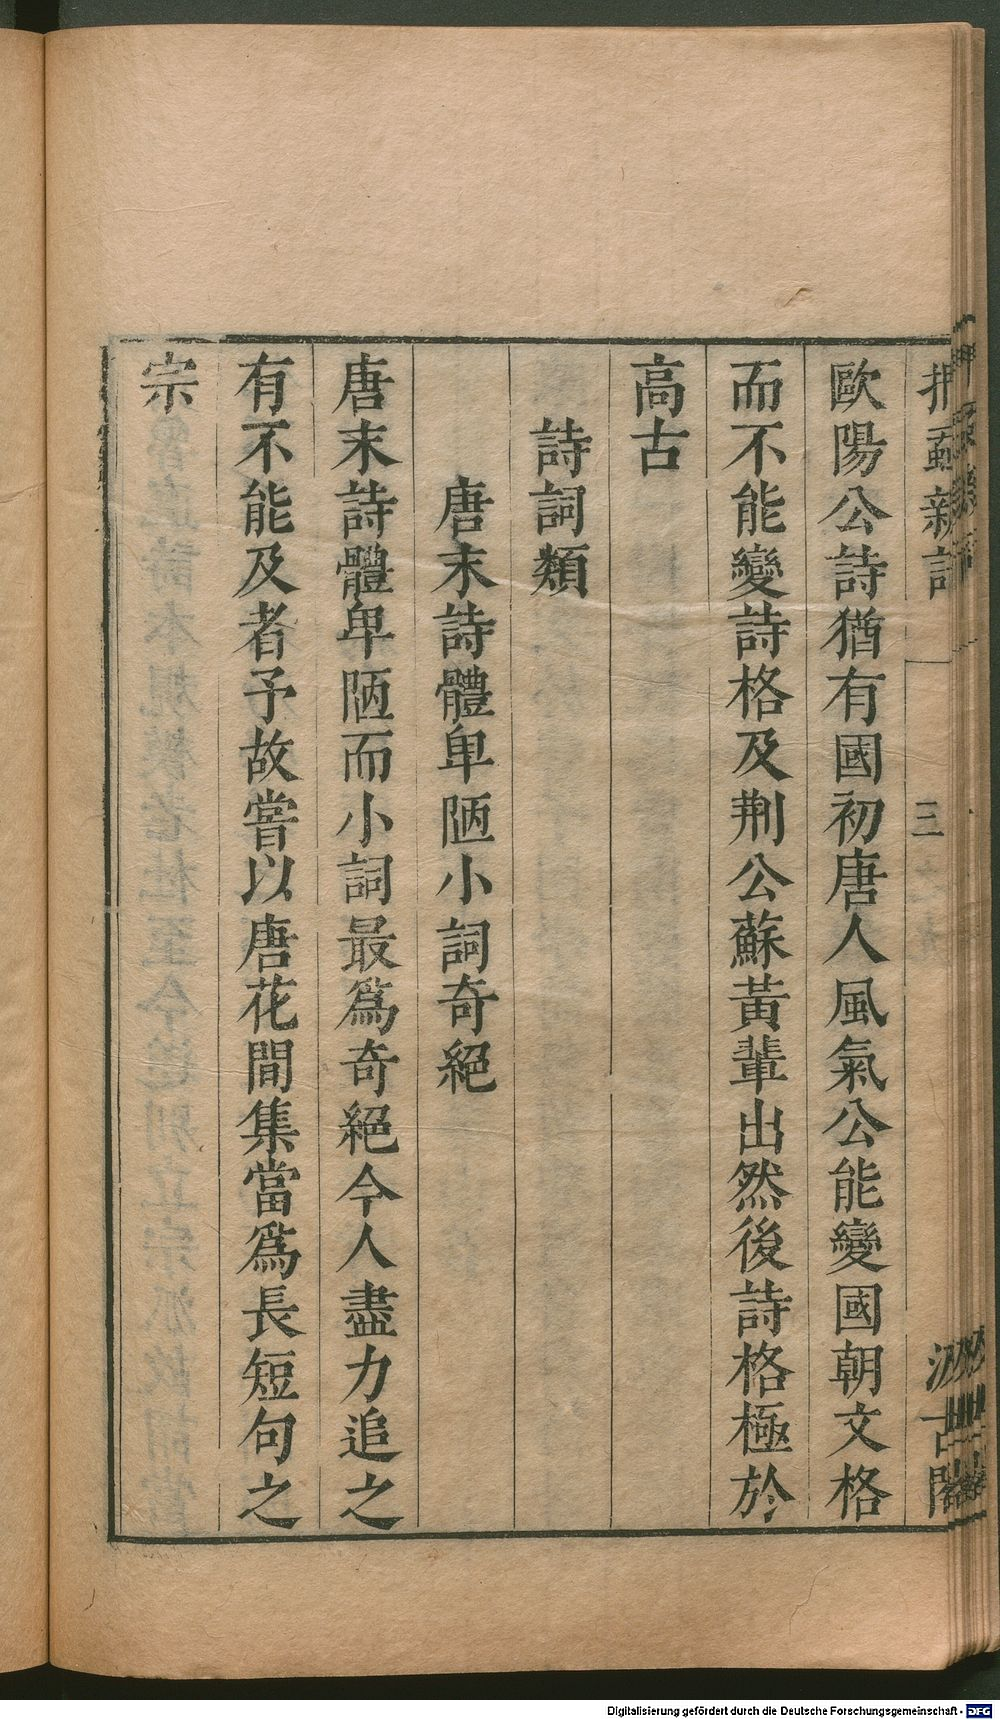 捫蝨新話
三
汲古閣
歐陽公詩猶有國初唐人風氣公能變國朝文格
而不能變詩格及荆公蘇黃輩出然後詩格極於
高古
詩詞類
唐末詩體卑陋小詞奇絕
唐末詩體卑陋而小詞最爲奇絕今人盡力追之
有不能及者予故嘗以唐花間集當爲長短句之
宗
Digitalisierung gefördert durch die Deutsche Forschungsgemeinschaft - DFG